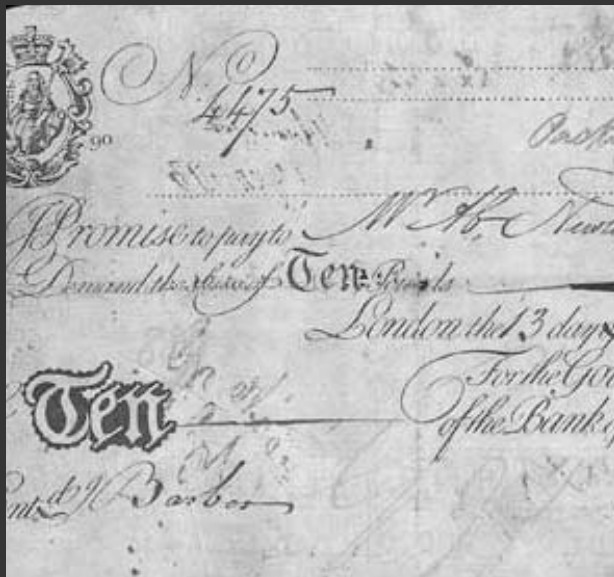 No
4475
90
I Promise to pay to Mr Ab. Newla
Demand the Sume of Ten Pounds
London the 13 day of
For the Go
of the Bank of
Ten
Ent.d J Barber